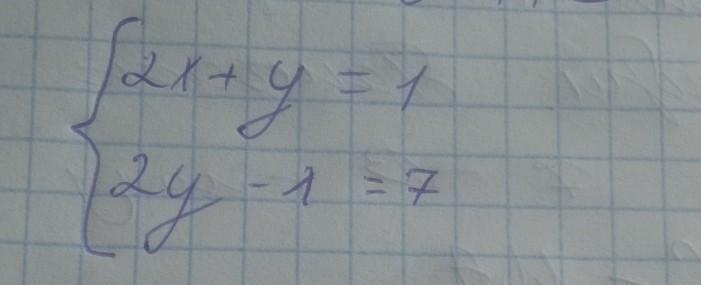 2x + y = 1
2y - 1 = 7